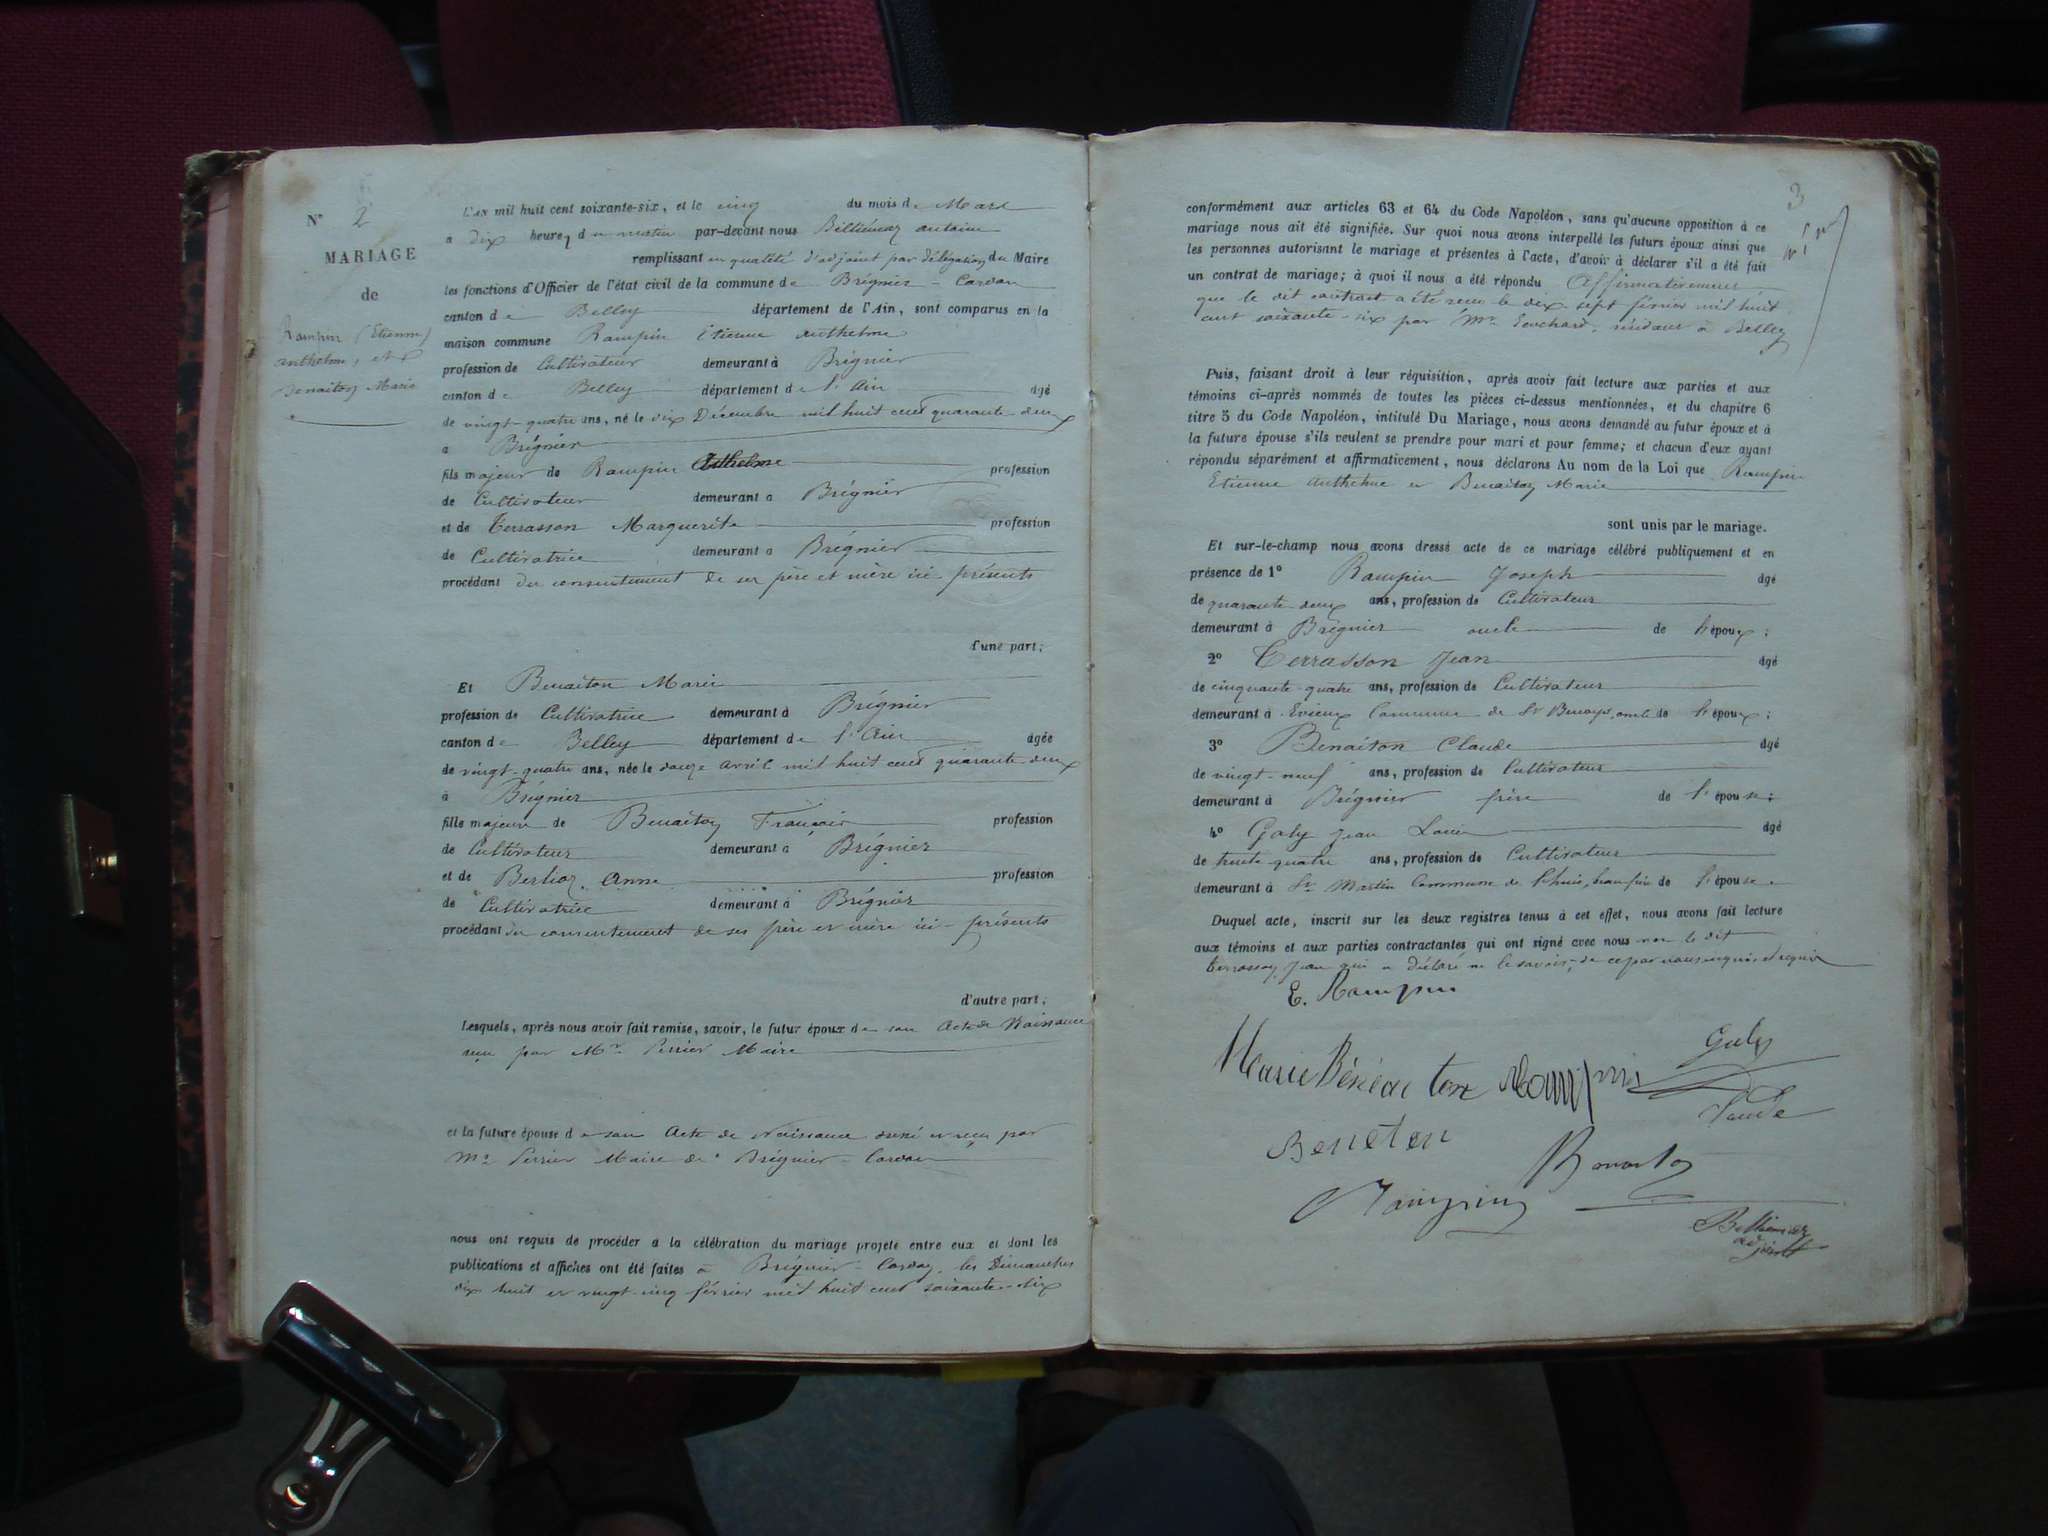 N° 2
MARIAGE
de
Rampin (Etienne)
anthelme, et
Benaiton Marie
L'AN mil huit cent soixante-six, et le cinq du mois de Mars
a dix heures du matin par-devant nous Belliemaz antoine
remplissant en qualité d'adjoint par délégation du Maire
les fonctions d'Officier de l'état civil de la commune de Brégnier-Cordon
canton de Belley département de l'Ain, sont comparus en la
maison commune Rampin Etienne Anthelme
profession de Cultivateur demeurant à Brégnier
canton de Belley département de l'Ain âgé
de vingt-quatre ans, né le dix Décembre mil huit cent quarante deux
a Brégnier
fils majeur de Rampin Anthelme profession
de Cultivateur demeurant a Brégnier
et de Terrasson Marguerite profession
de Cultivatrice demeurant a Brégnier
procédant du consentement de ses père et mère ici présents
d'une part;
Et Benaiton Marie
profession de Cultivatrice demeurant à Brégnier
canton de Belley département de l'Ain âgée
de vingt-quatre ans, née le douze avril mil huit cent quarante deux
à Brégnier
fille majeure de Benaiton François profession
de Cultivateur demeurant à Brégnier
et de Berlioz Anne profession
de Cultivatrice demeurant à Brégnier
procédant du consentement de ses père et mère ici présents
d'autre part;
Lesquels, après nous avoir fait remise, savoir, le futur époux de son Acte de Naissance
reçu par Mr Perrier Maire
et la future épouse de son Acte de Naissance reçu par
Mr Perrier Maire de Brégnier-Cordon
nous ont requis de procéder a la célébration du mariage projeté entre eux et dont les
publications et affiches ont été faites à Brégnier-Cordon, les Dimanches
dix huit et vingt-cinq février mil huit cent soixante-six
3
conformément aux articles 63 et 64 du Code Napoléon, sans qu'aucune opposition à ce
mariage nous ait été signifiée. Sur quoi nous avons interpellé les futurs époux ainsi que
les personnes autorisant le mariage et présentes à l'acte, d'avoir à déclarer s'il a été fait
un contrat de mariage; à quoi il nous a été répondu affirmativement
que le dit contrat a été reçu le dix sept février mil huit
cent soixante-six par Mr résidant à Belley
Puis, faisant droit à leur réquisition, après avoir fait lecture aux parties et aux
témoins ci-après nommés de toutes les pièces ci-dessus mentionnées, et du chapitre 6
titre 5 du Code Napoléon, intitulé Du Mariage, nous avons demandé au futur époux et à
la future épouse s'ils veulent se prendre pour mari et pour femme; et chacun d'eux ayant
répondu séparément et affirmativement, nous déclarons Au nom de la Loi que Rampin
Etienne Anthelme et Benaiton Marie
sont unis par le mariage.
Et sur-le-champ nous avons dressé acte de ce mariage célébré publiquement et en
présence de 1° Rampin Joseph âgé
de quarante deux ans, profession de Cultivateur
demeurant à Brégnier oncle de l'époux;
2° Terrasson Jean âgé
de cinquante-quatre ans, profession de Cultivateur
demeurant à Evieux Commune de St Benoit, oncle de l'époux;
3° Benaiton Claude âgé
de vingt-neuf ans, profession de Cultivateur
demeurant à Brégnier frère de l'épouse;
4° Goly Jean Louis âgé
de trente quatre ans, profession de Cultivateur
demeurant à St Martin Commune de Lhuis, beau frère de l'épouse
Duquel acte, inscrit sur les deux registres tenus à cet effet, nous avons fait lecture
aux témoins et aux parties contractantes qui ont signé avec nous non le dit
Terrasson Jean qui a déclaré ne le savoir, de ce par nous enquis et requis
E. Rampin
Goly
Marie Bénéaiton Rampin
Claude
Beneton
Benaiton
Rampin
Belliemaz
adjoint